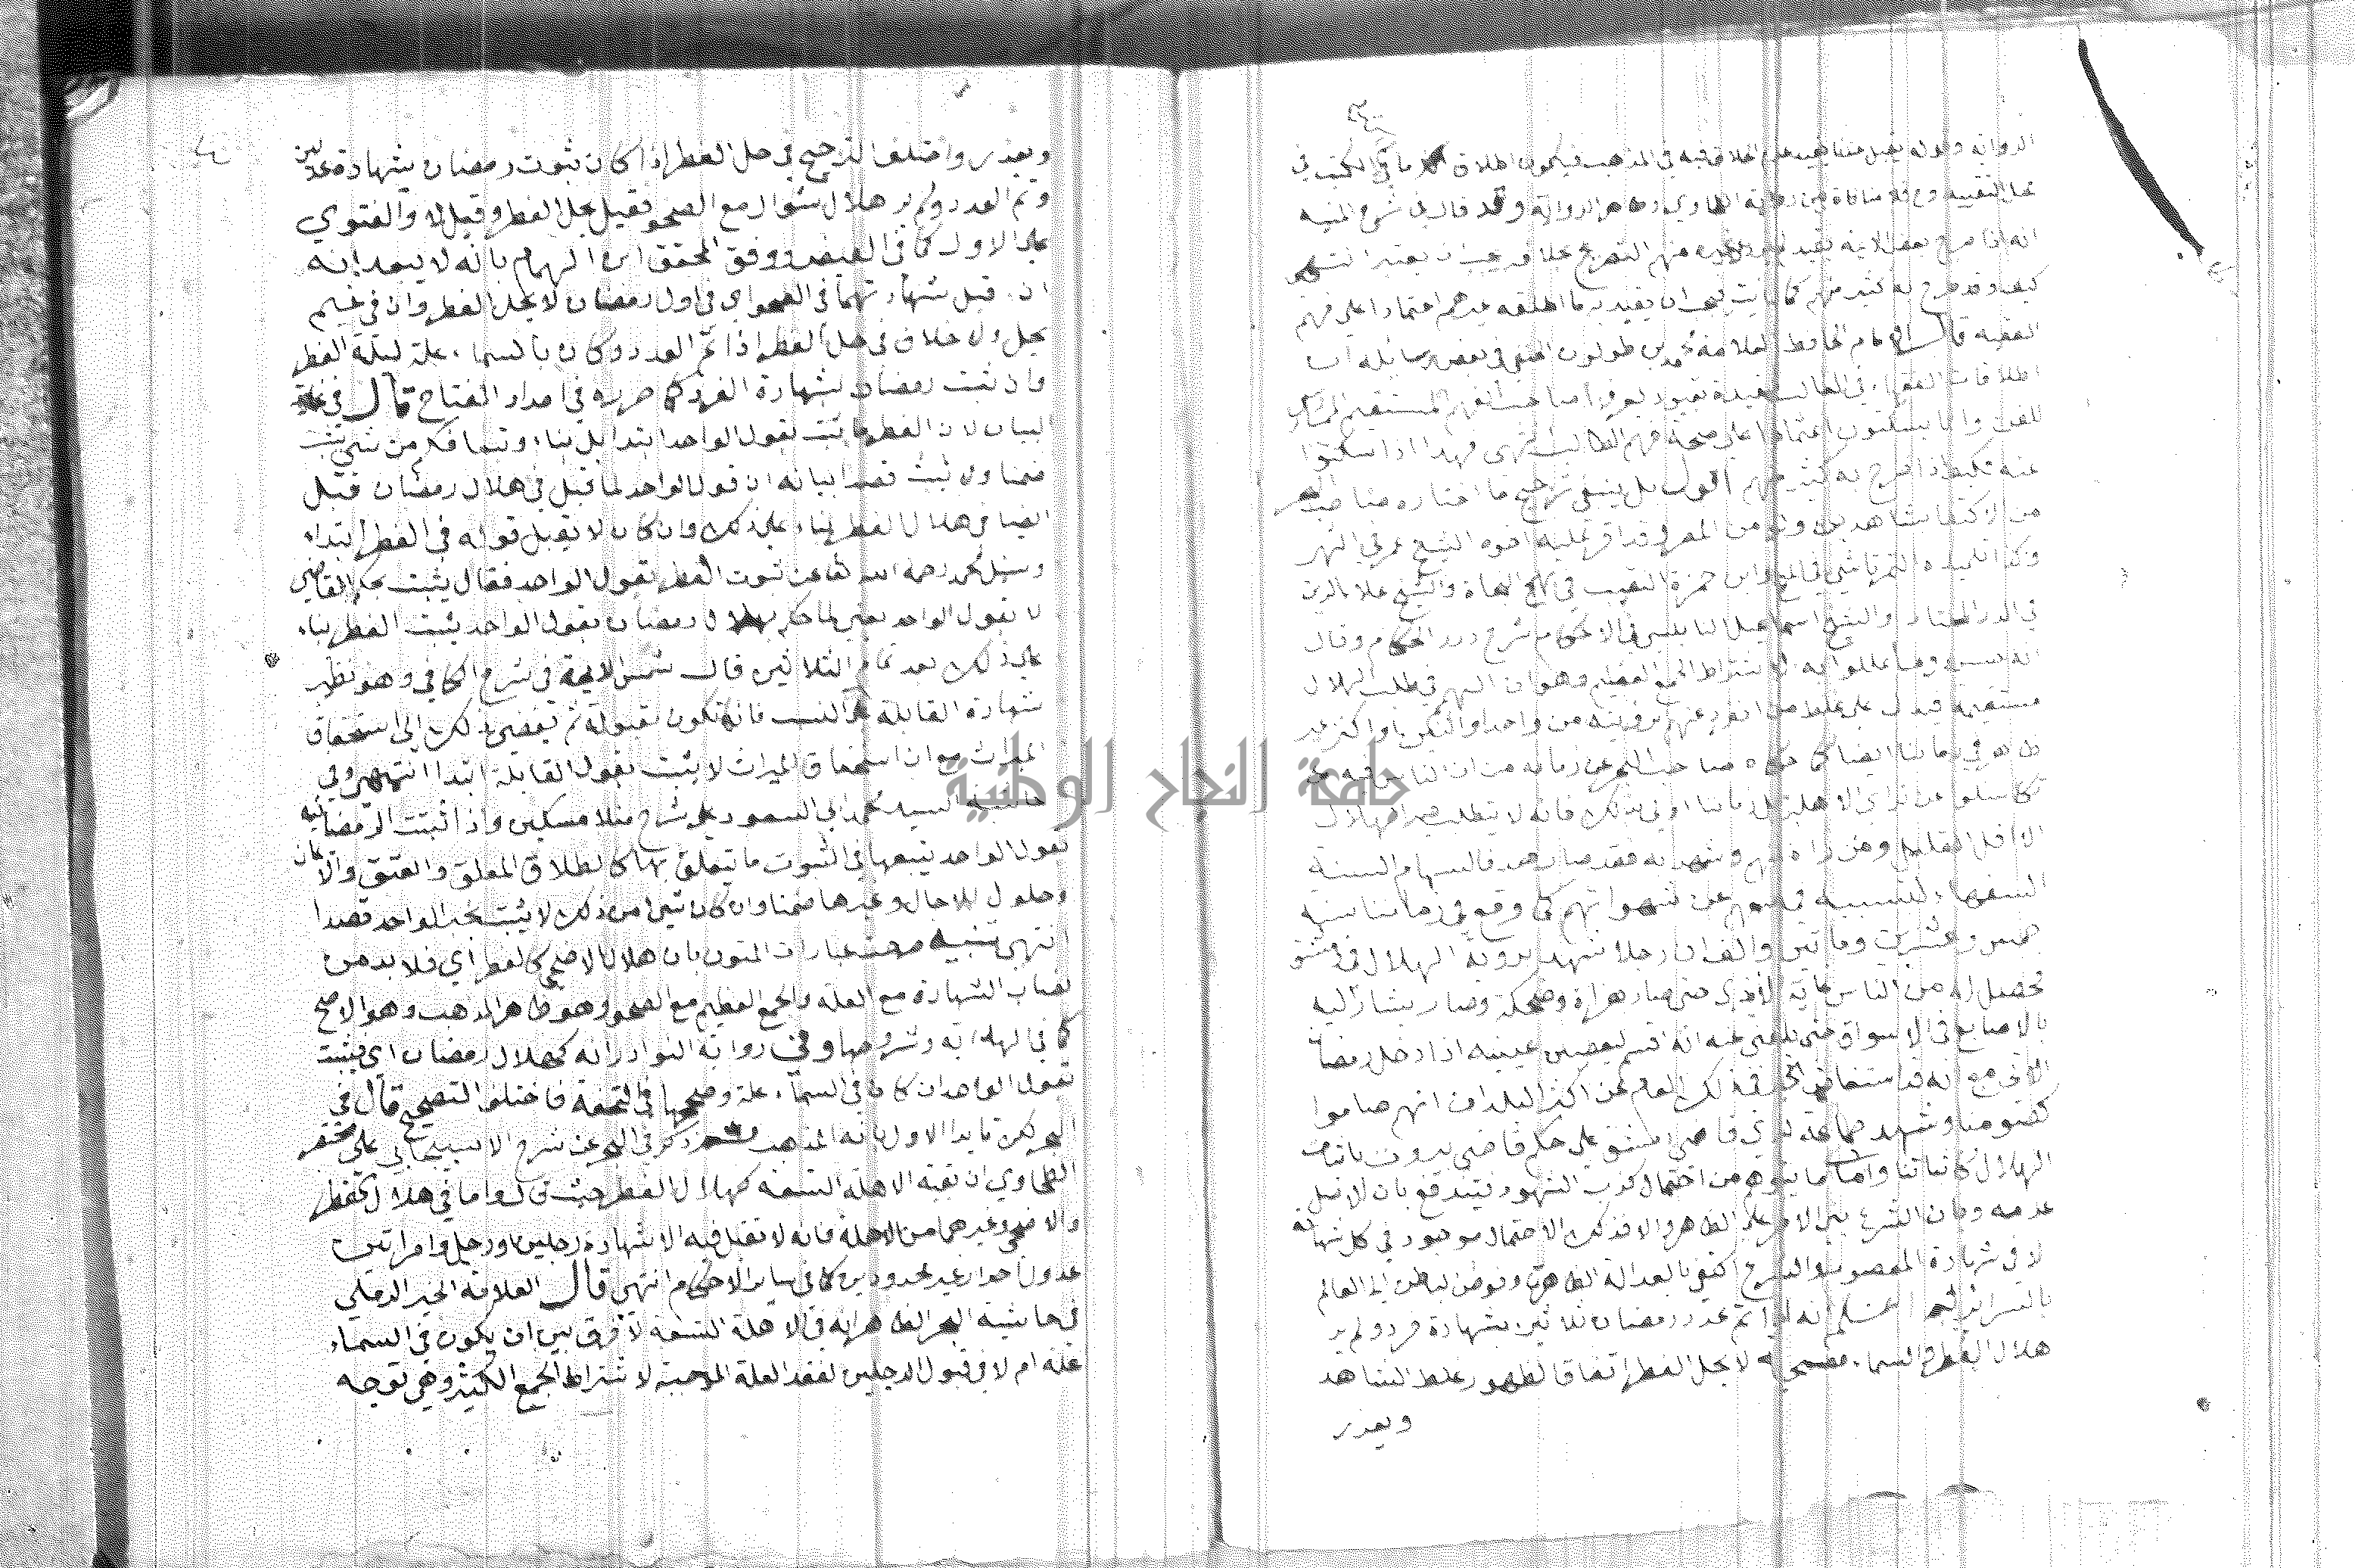 الرواية وقوله يقبل مثنا يفيد عدم الخلاف فيه في المذهب فيكون اطلاق ما في الكتب في
محل التقييد وح فلا منافاة بين رواية الطحاوي وظاهر الرواية وقد قال في شرح المنية
انه اذا صرح بعض الائمة بقيد لم يرد عن غيره منهم التصريح بخلافه يجب ان يعتبر انتهى
كيف وقد صرح به كثير منهم كما رايت فيجب ان يقيد به ما اطلقه غيرهم اعتمادا على فهم
الفقيه قال الامام الحافظ العلامة محمد بن طولون الحنفي في بعض رسائله ان
اطلاقات الفقهاء في الغالب مقيدة بقيود يعرفها صاحب الفهم المستقيم الممارس
للفن وانما يسكتون اعتمادا على صحة فهم الطالب انتهى فهذا اذا سكتوا
عنه فكيف اذا صرح به كثير منهم اقول بل ينبغي ترجيح ما اختاره صاحب البحر
من الاكتفا بشاهدين ولو من المصر وقد اقر عليه اخوه الشيخ عمر في النهر
وكذا تلميذه التمرتاشي في المنح وابن حمزة النقيب في نهج النجاة والشيخ علا الدين
في الدر المختار والشيخ اسماعيل النابلسي في الاحكام شرح درر الحكام وقال
انه حسن وما عللوا به لاشتراط الجمع العظيم وهو ان الهمم في طلب الهلال
مستقيمة فيدل على غلط من انفرد عنهم برؤيته من واحد او اثنين او اكثر غير
ظاهر في زماننا ايضا كما ذكره صاحب البحر عن زمانه من ان الناس فيه
تكاسلوا عن تراي الاهلة بل زماننا اولى بذلك فانه لا يتطلب هلال
الا اقل القليل ومن راه منهم وشهد به فقد صار هدفا لسهام السنة
السفهاء لتسببه في منعهم عن شهواتهم كما وقع في زماننا سنة
خمس وعشرين ومايتين والف ان رجلا شهد برؤية الهلال في دمشق
فحصل له من الناس غاية الاذى حتى صار هزاة وضحكة وصار يشار اليه
بالاصابع في الاسواق حتى بلغني عنه انه اقسم ليعصبن عينيه اذا دخل رمضان
الآخر مع انه قد استفاض الخبر في ذلك العام عن اكثر البلدان انهم صاموا
كصومنا وشهد جماعة لدى قاضي دمشق على حكم قاضي بيروت باثبات
الهلال كاثباتنا واما ما يتوهم من احتمال كذب الشهود فيندفع بان الاصل
عدمه وبان الشرع بنى الامر على الظاهر والا فذلك الاحتمال موجود في كل شهادة
لا في شهادة المعصوم والشرع اكتفى بالعدالة الظاهرة وفوض الباطن الى العالم
بالسرائر ثم اعلم انه اذا تم عدد رمضان ثلاثين بشهادة فرد ولم ير
هلال الفطر والسماء مصحية لا يحل الفطر اتفاقا لظهور غلط الشاهد
ويعذر
ويعذر واختلف الترجيح في حل الفطر اذا كان ثبوت رمضان بشهادة عدلين
وتم العدد ولم ير هلال شوال مع الصحو فقيل يحل الفطر وقيل لا والفتوى
على الاول كما في الفيض ووفق المحقق ابن الهمام بانه لا يبعد انه
ان قبل شهادتهما في الصحو اي في اول رمضان لا يحل الفطر وان في غيم
يحل ولا خلاف في حل الفطر اذا تم العدد وكان بالسماء علة ليلة الفطر
وان ثبت رمضان بشهادة الفرد كما حرره في امداد الفتاح قال في غاية
البيان لان الفطر ما ثبت بقول الواحد ابتدا بل بناء وتبعا فكم من شي يثبت
ضمنا ولا يثبت قصدا بيانه ان قول الواحد لما قبل في هلال رمضان قبل
ايضا في هلال الفطر بناء على ذلك وان كان لا يقبل قوله في الفطر ابتداء
وسئل محمد رحمه الله تعا عن ثبوت الفطر بقول الواحد فقال يثبت بحكم القاضي
لا بقول الواحد يعني لما حكم بهلال رمضان بقول الواحد يثبت الفطر بناء
على ذلك بعد تمام الثلاثين قال شمس الايمة في شرح الكافي وهو نظير
شهادة القابلة على النسب فانها تكون مقبولة ثم يفضي ذلك الى استحقاق
الميراث مع ان استحقاق الميراث لا يثبت بقول القابلة ابتدا انتهى وفي
حاشية السيد محمد ابي السعود على شرح منلا مسكين واذا ثبتت الرمضانية
بقول الواحد يتبعها في الثبوت ما يتعلق بها كالطلاق المعلق والعتق والايمان
وحلول الاجال وغيرها ضمنا وان كان شيء من ذلك لا يثبت بخبر الواحد قصدا
انتهى تنبيه صرحت عبارات المتون بان هلال الاضحى كالفطر اي فلا بد من
نصاب الشهادة مع العلة والجمع العظيم مع الصحو وهو ظاهر المذهب وهو الاصح
كما في الهداية وشروحها وفي رواية النوادر انه كهلال رمضان اي فيثبت
بقول الواحد ان كان في السماء علة وصححها في التحفة فاختلف التصحيح قال في
البحر لكن تايد الاول بانه المذهب ثم ذكر في البحر عن شرح الاسبيجابي على مختصر
الطحاوي ان بقية الاهلة التسعة كهلال الفطر حيث قال واما في هلال الفطر
والاضحى وغيرهما من الاهلة فانه لا تقبل فيه الا شهادة رجلين او رجل وامراتين
عدول احرار غير محدودين كما في ساير الاحكام انتهى قال العلامة الخير الرملي
في حاشية البحر الظاهر انه في الاهلة التسعة لا فرق بين ان يكون في السماء
علة ام لا في قبول الرجلين لفقد العلة الموجبة لاشتراط الجمع الكثير وهي توجه
جامعة النجاح الوطنية